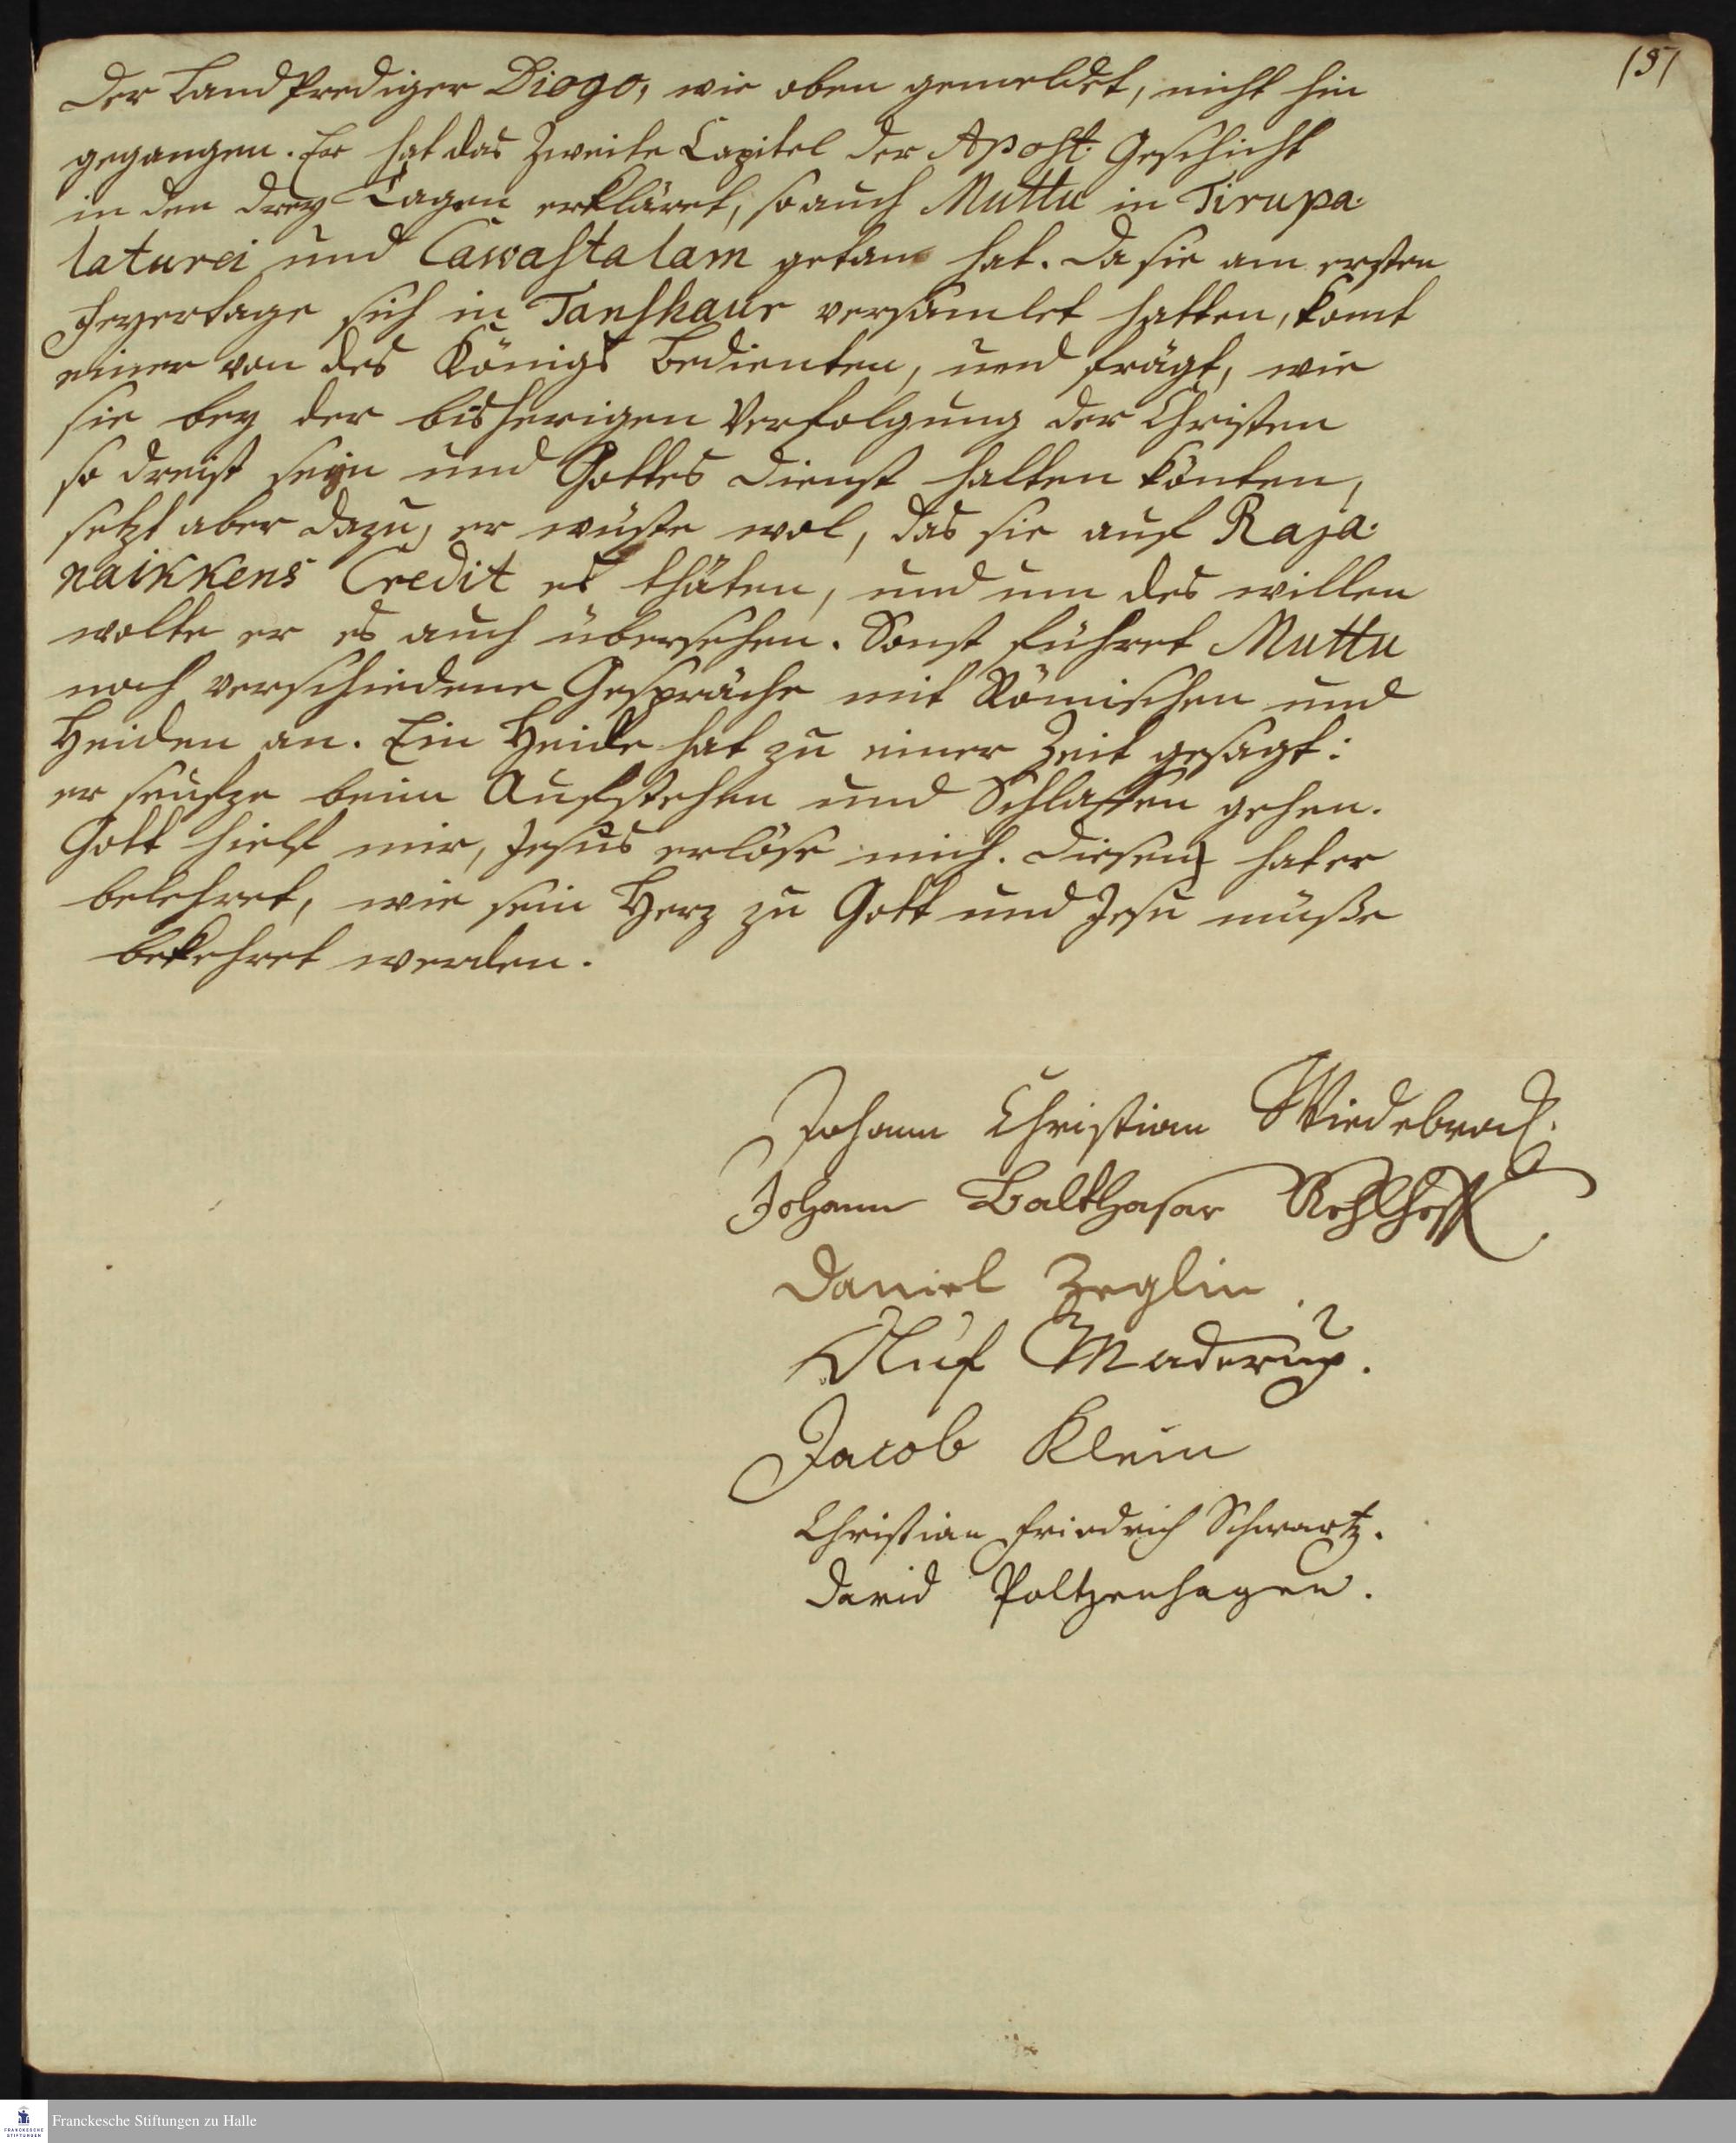 157
Der Land Prediger Diogo, wie oben gemeldet, nicht hin
gegangen. Er hat das Zweite Capitel der Apost. Geschicht
in den drey Tagen erkläret, so auch Muttu in Tirupa-
laturei und Cawastalam getan hat. Da sie am ersten
Feyertage sich in Tanshaur versamlet hatten, komt
einer von des Königs Bedienten, und frägt, wie
sie bey der bisherigen Verfolgung der Christen
so dreist seyn und Gottes Dienst halten könten,
setzt aber dazu, er wüste wol, das sie auf Raja-
naikkens Credit es thäten, und um des willen
wolte er es auch übersehen. Sonst führet Muttu
noch verschiedene Gespräche mit Römischen und
Heiden an. Ein Heide hat zu einer Zeit gesagt:
er seufze beim Aufstehen und Schlaffen gehen.
Gott hielf mir, Jesus erlöse mich. Diesen hat er
belehret, wie sein Herz zu Gott und Jesu müße
bekehret werden.
Johann Christian Wiedebrock.
Johann Balthasar Kohlhoff
Daniel Zeglin.
Oluf Maderup.
Jacob Klein
Christian Friedrich Schwartz.
David Poltzenhagen.
FRANCKESCHE
STIFTUNGEN
Franckesche Stiftungen zu Halle